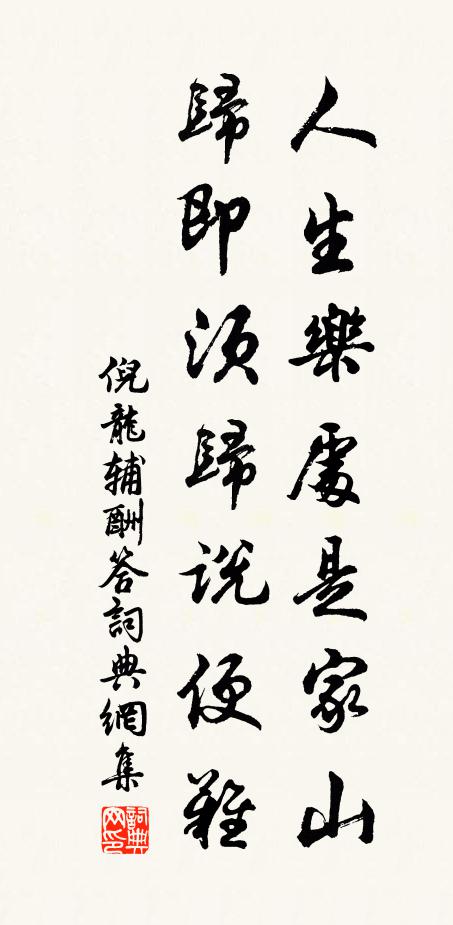 人生樂處是家山
歸即須歸說便難
倪龍輔酬答詞典網集
詞典网印